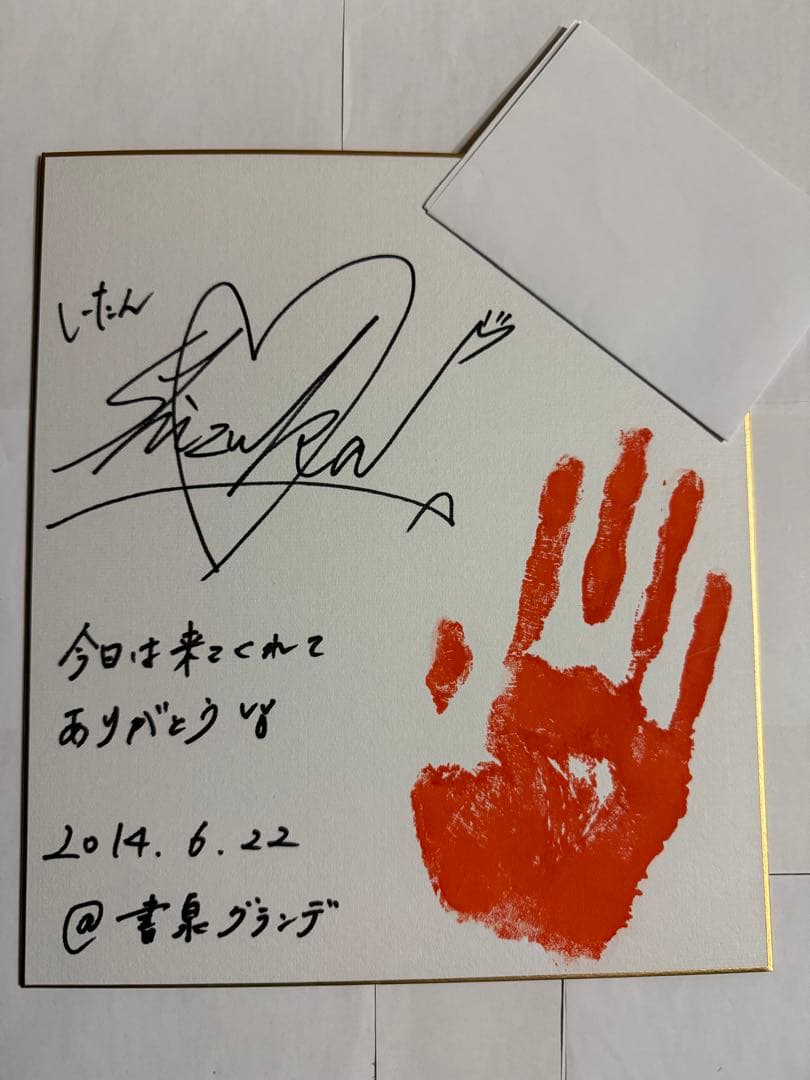 しーたん
Shizuka
今日は来てくれて
ありがとう
2014.6.22
@書泉グランデ